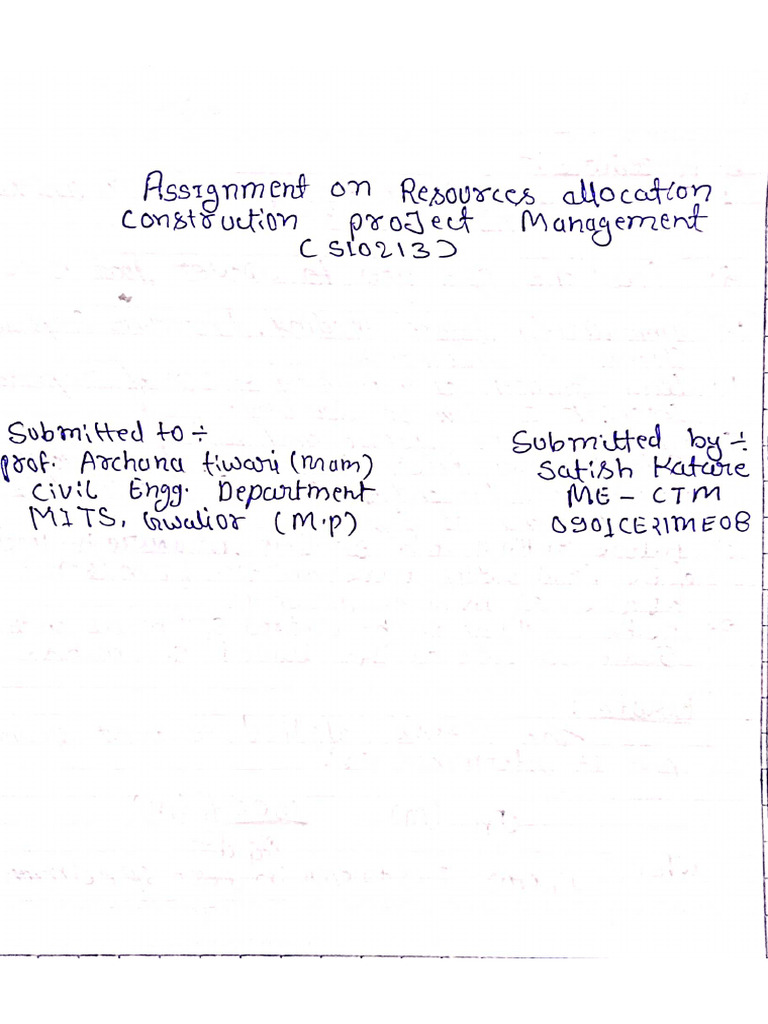 Assignment on Resources allocation
Construction project Management
(510213)
Submitted to ÷
prof. Archana tiwari (mam)
Civil Engg. Department
MITS, Gwalior (M.p)
Submitted by ÷
Satish Katare
ME - CTM
0901CE21ME08